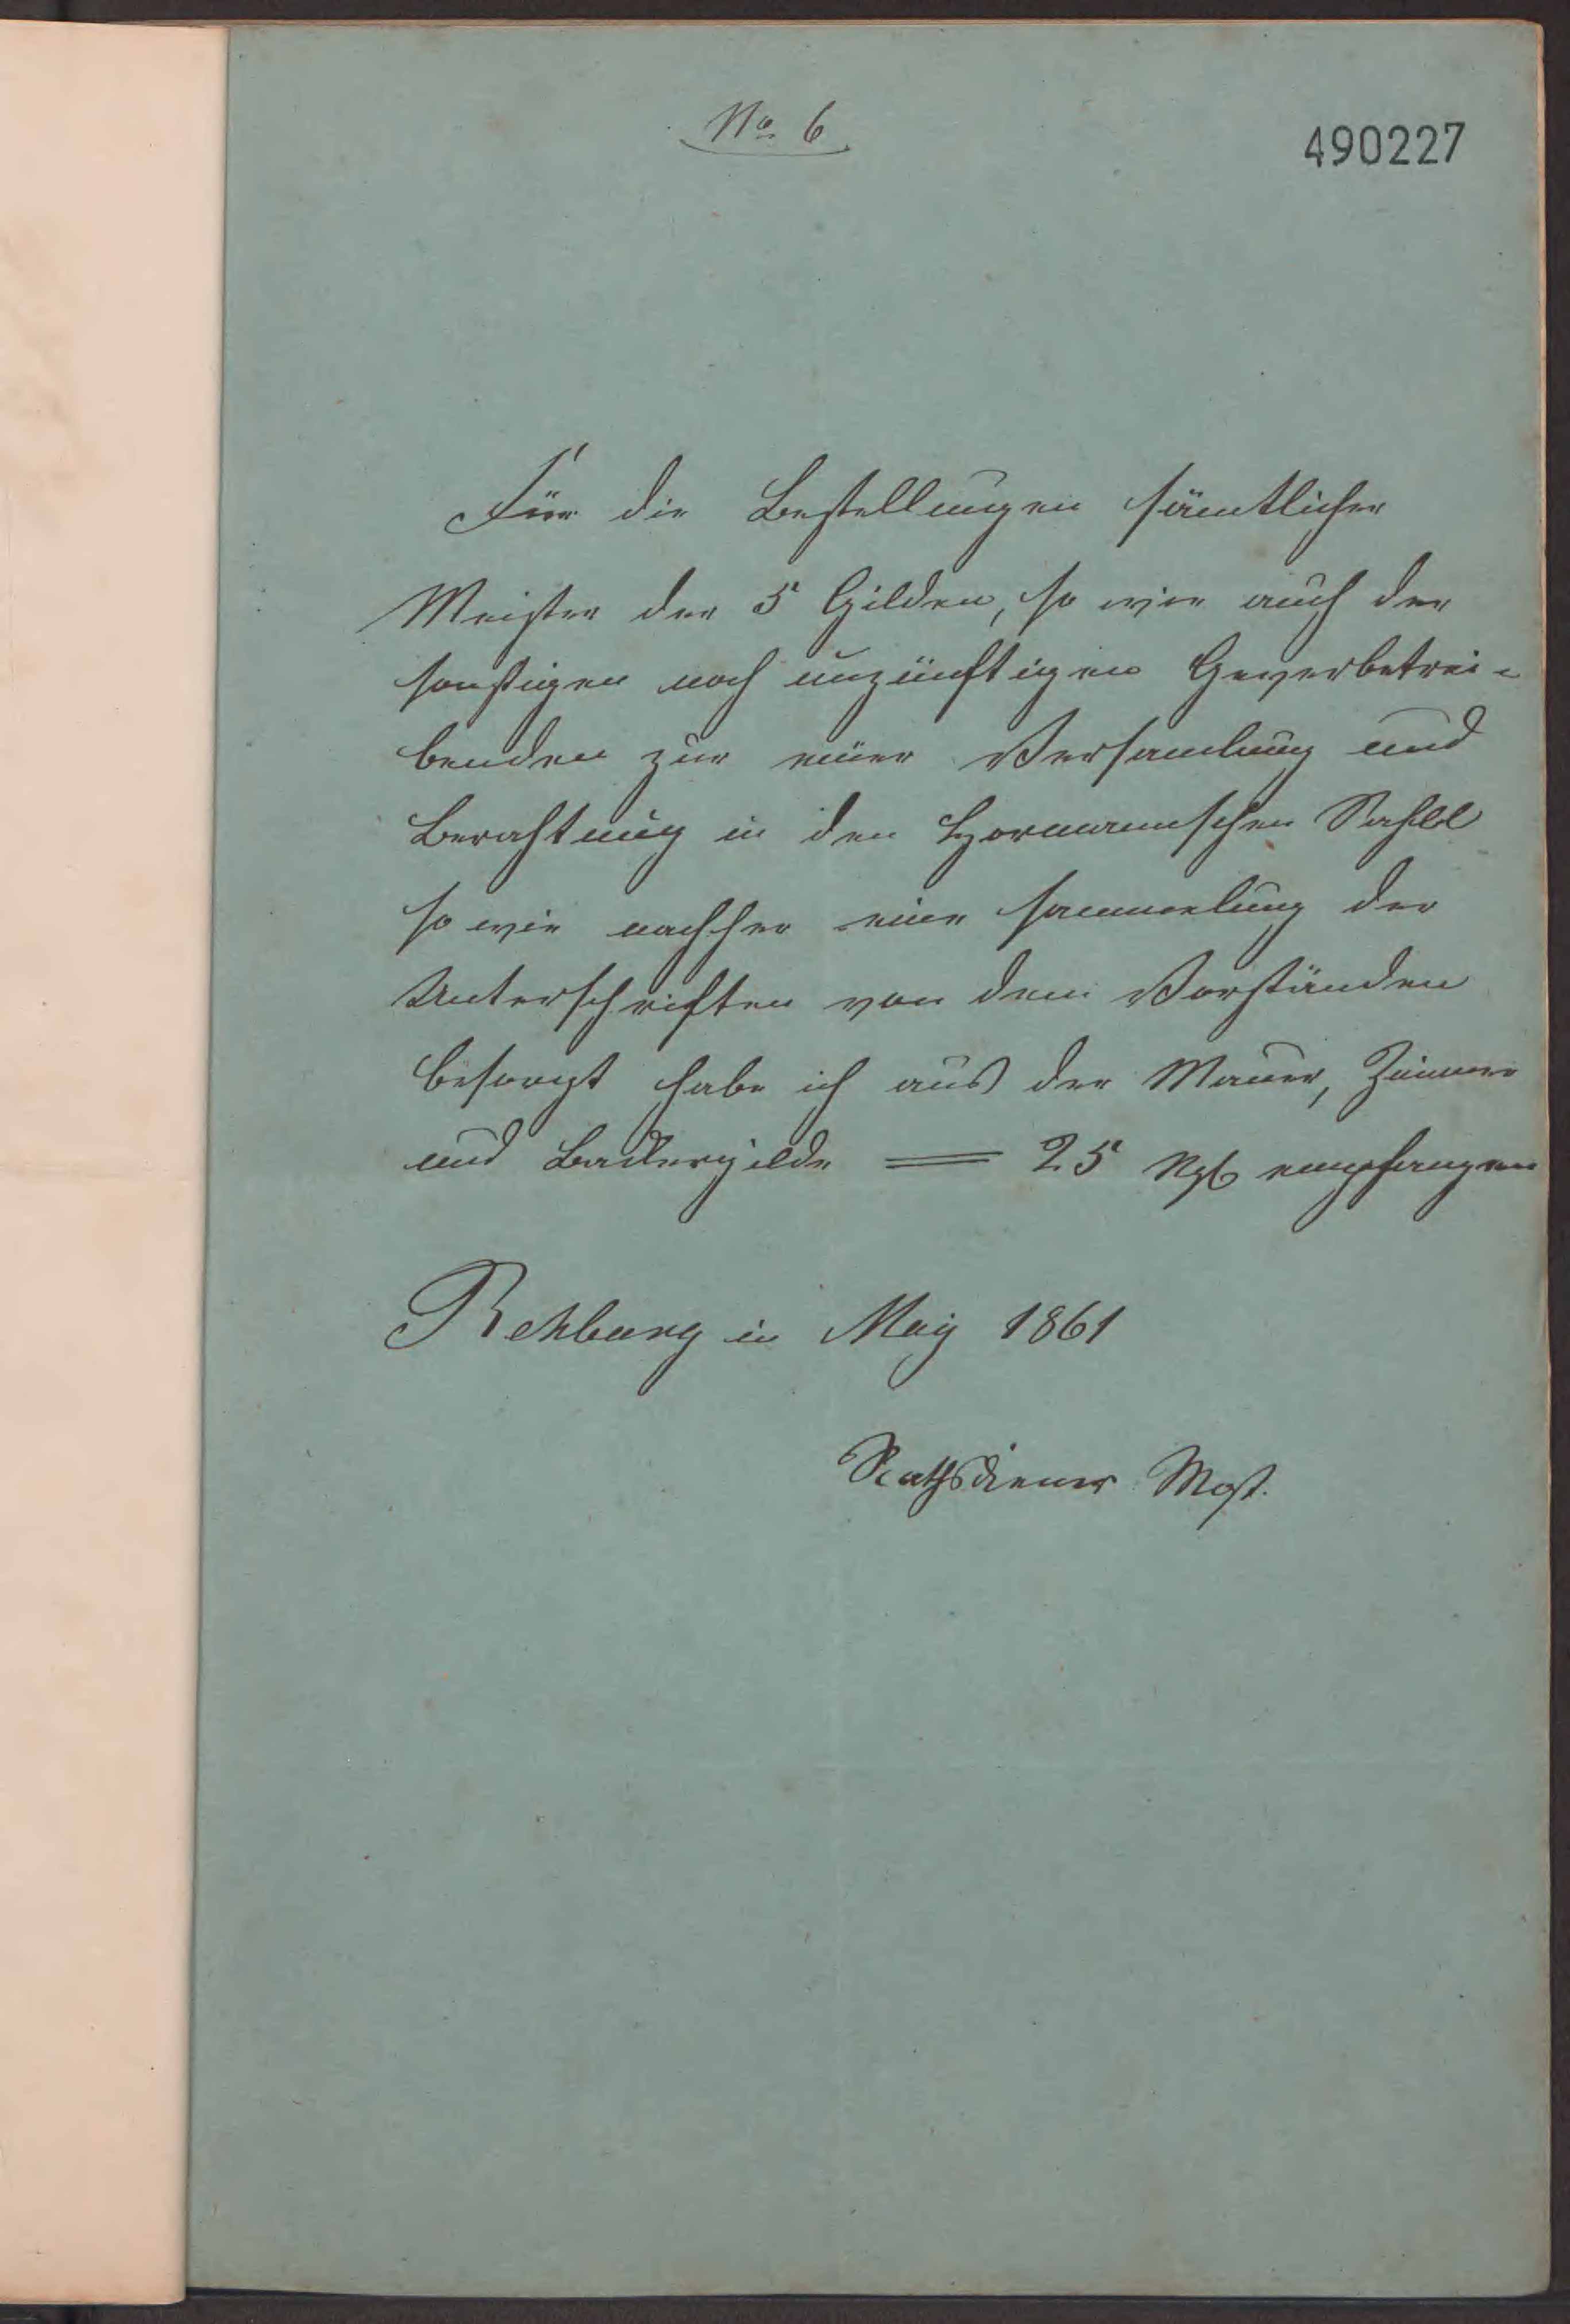 No. 6
490227
Für die Bestellungen sämtlicher
Meister der 5 Gilden, so wie auch der
sonstigen noch unzünftigen Gewerbetrei-
benden zur einer Versamlung und
Berahtung in den Hormannschen Sahll
so wie nachher eine sammelung der
Unterschriften von dem Vorständen
besorgt habe ich aus der Maurer, Zimmer
und Backergilde = 25 Ngl empfangen
Rehburg in May 1861
Rathsdiener Most.